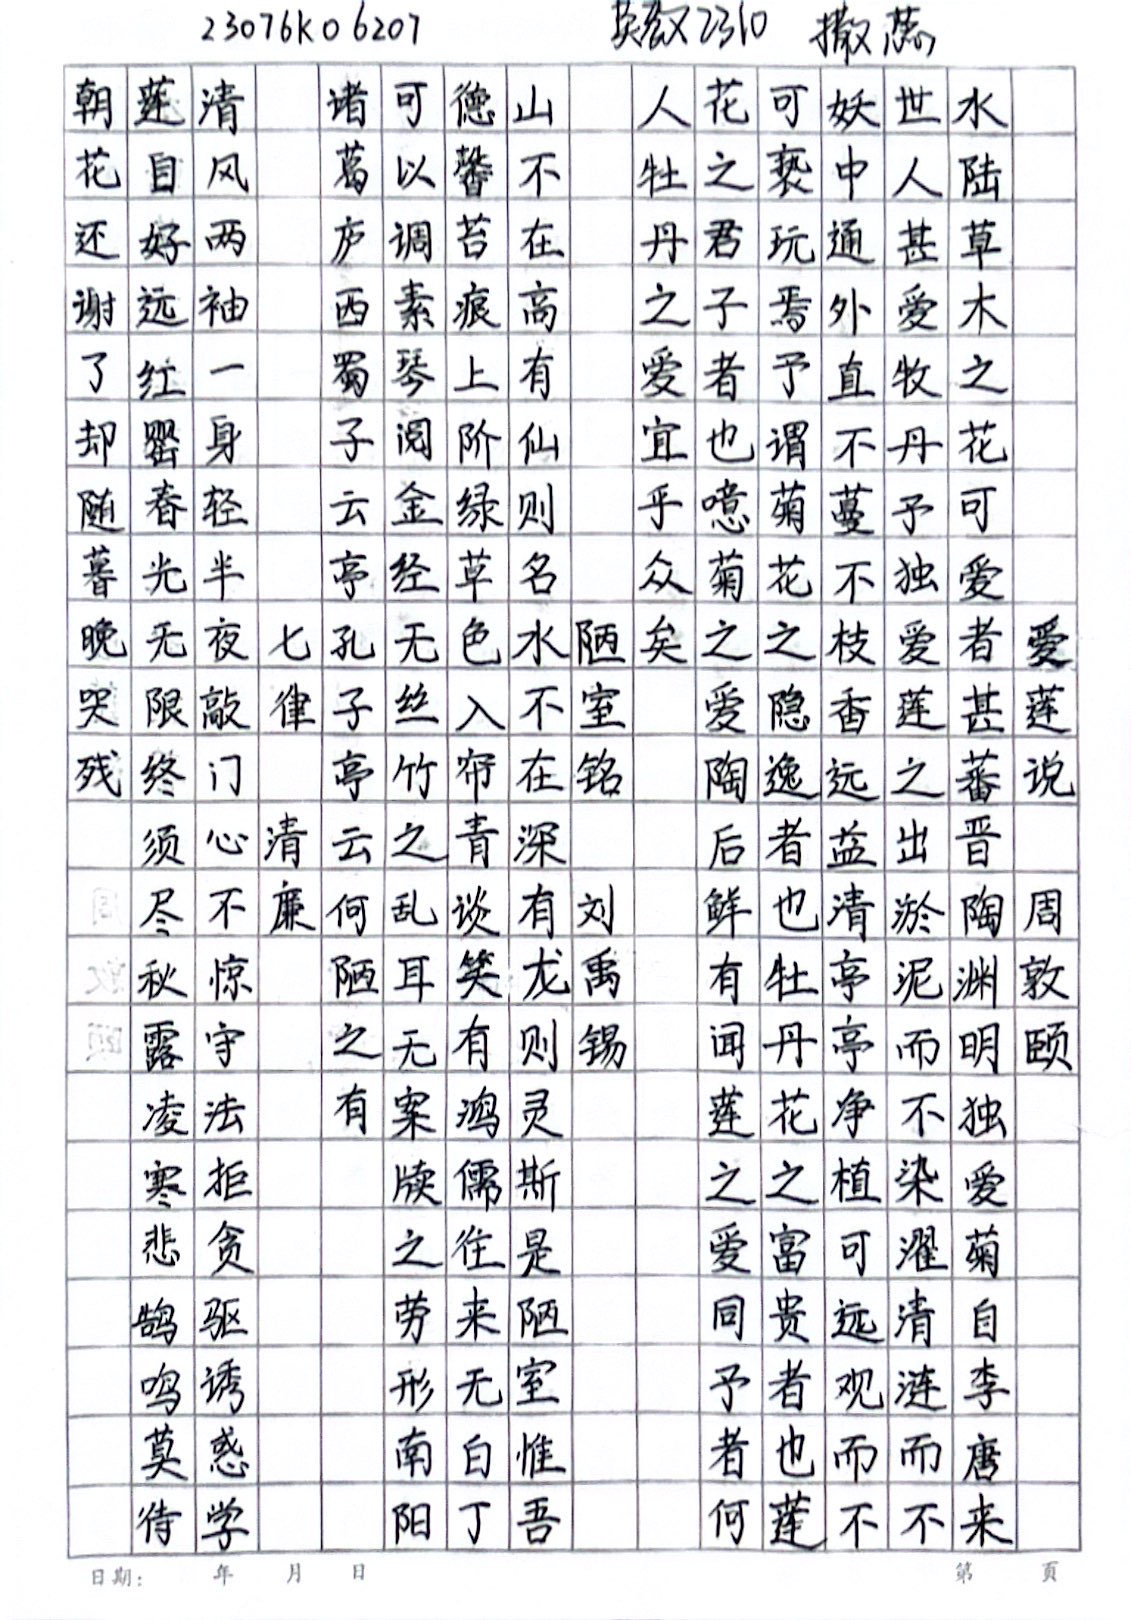 23076K06207 英教2310 撒蕊
爱莲说 周敦颐
水陆草木之花可爱者甚蕃晋陶渊明独爱菊自李唐来
世人甚爱牧丹予独爱莲之出淤泥而不染濯清涟而不
妖中通外直不蔓不枝香远益清亭亭净植可远观而不
可亵玩焉予谓菊花之隐逸者也牡丹花之富贵者也莲
花之君子者也噫菊之爱陶后鲜有闻莲之爱同予者何
人牡丹之爱宜乎众矣
陋室铭 刘禹锡
山不在高有仙则名水不在深有龙则灵斯是陋室惟吾
德馨苔痕上阶绿草色入帘青谈笑有鸿儒往来无白丁
可以调素琴阅金经无丝竹之乱耳无案牍之劳形南阳
诸葛庐西蜀子云亭孔子亭云何陋之有
七律 清廉
清风两袖一身轻半夜敲门心不惊守法拒贪驱诱惑学
莲自好远红罂春光无限终须尽秋露凌寒悲鹄鸣莫待
朝花还谢了却随暮晚哭残
日期： 年 月 日 第 頁